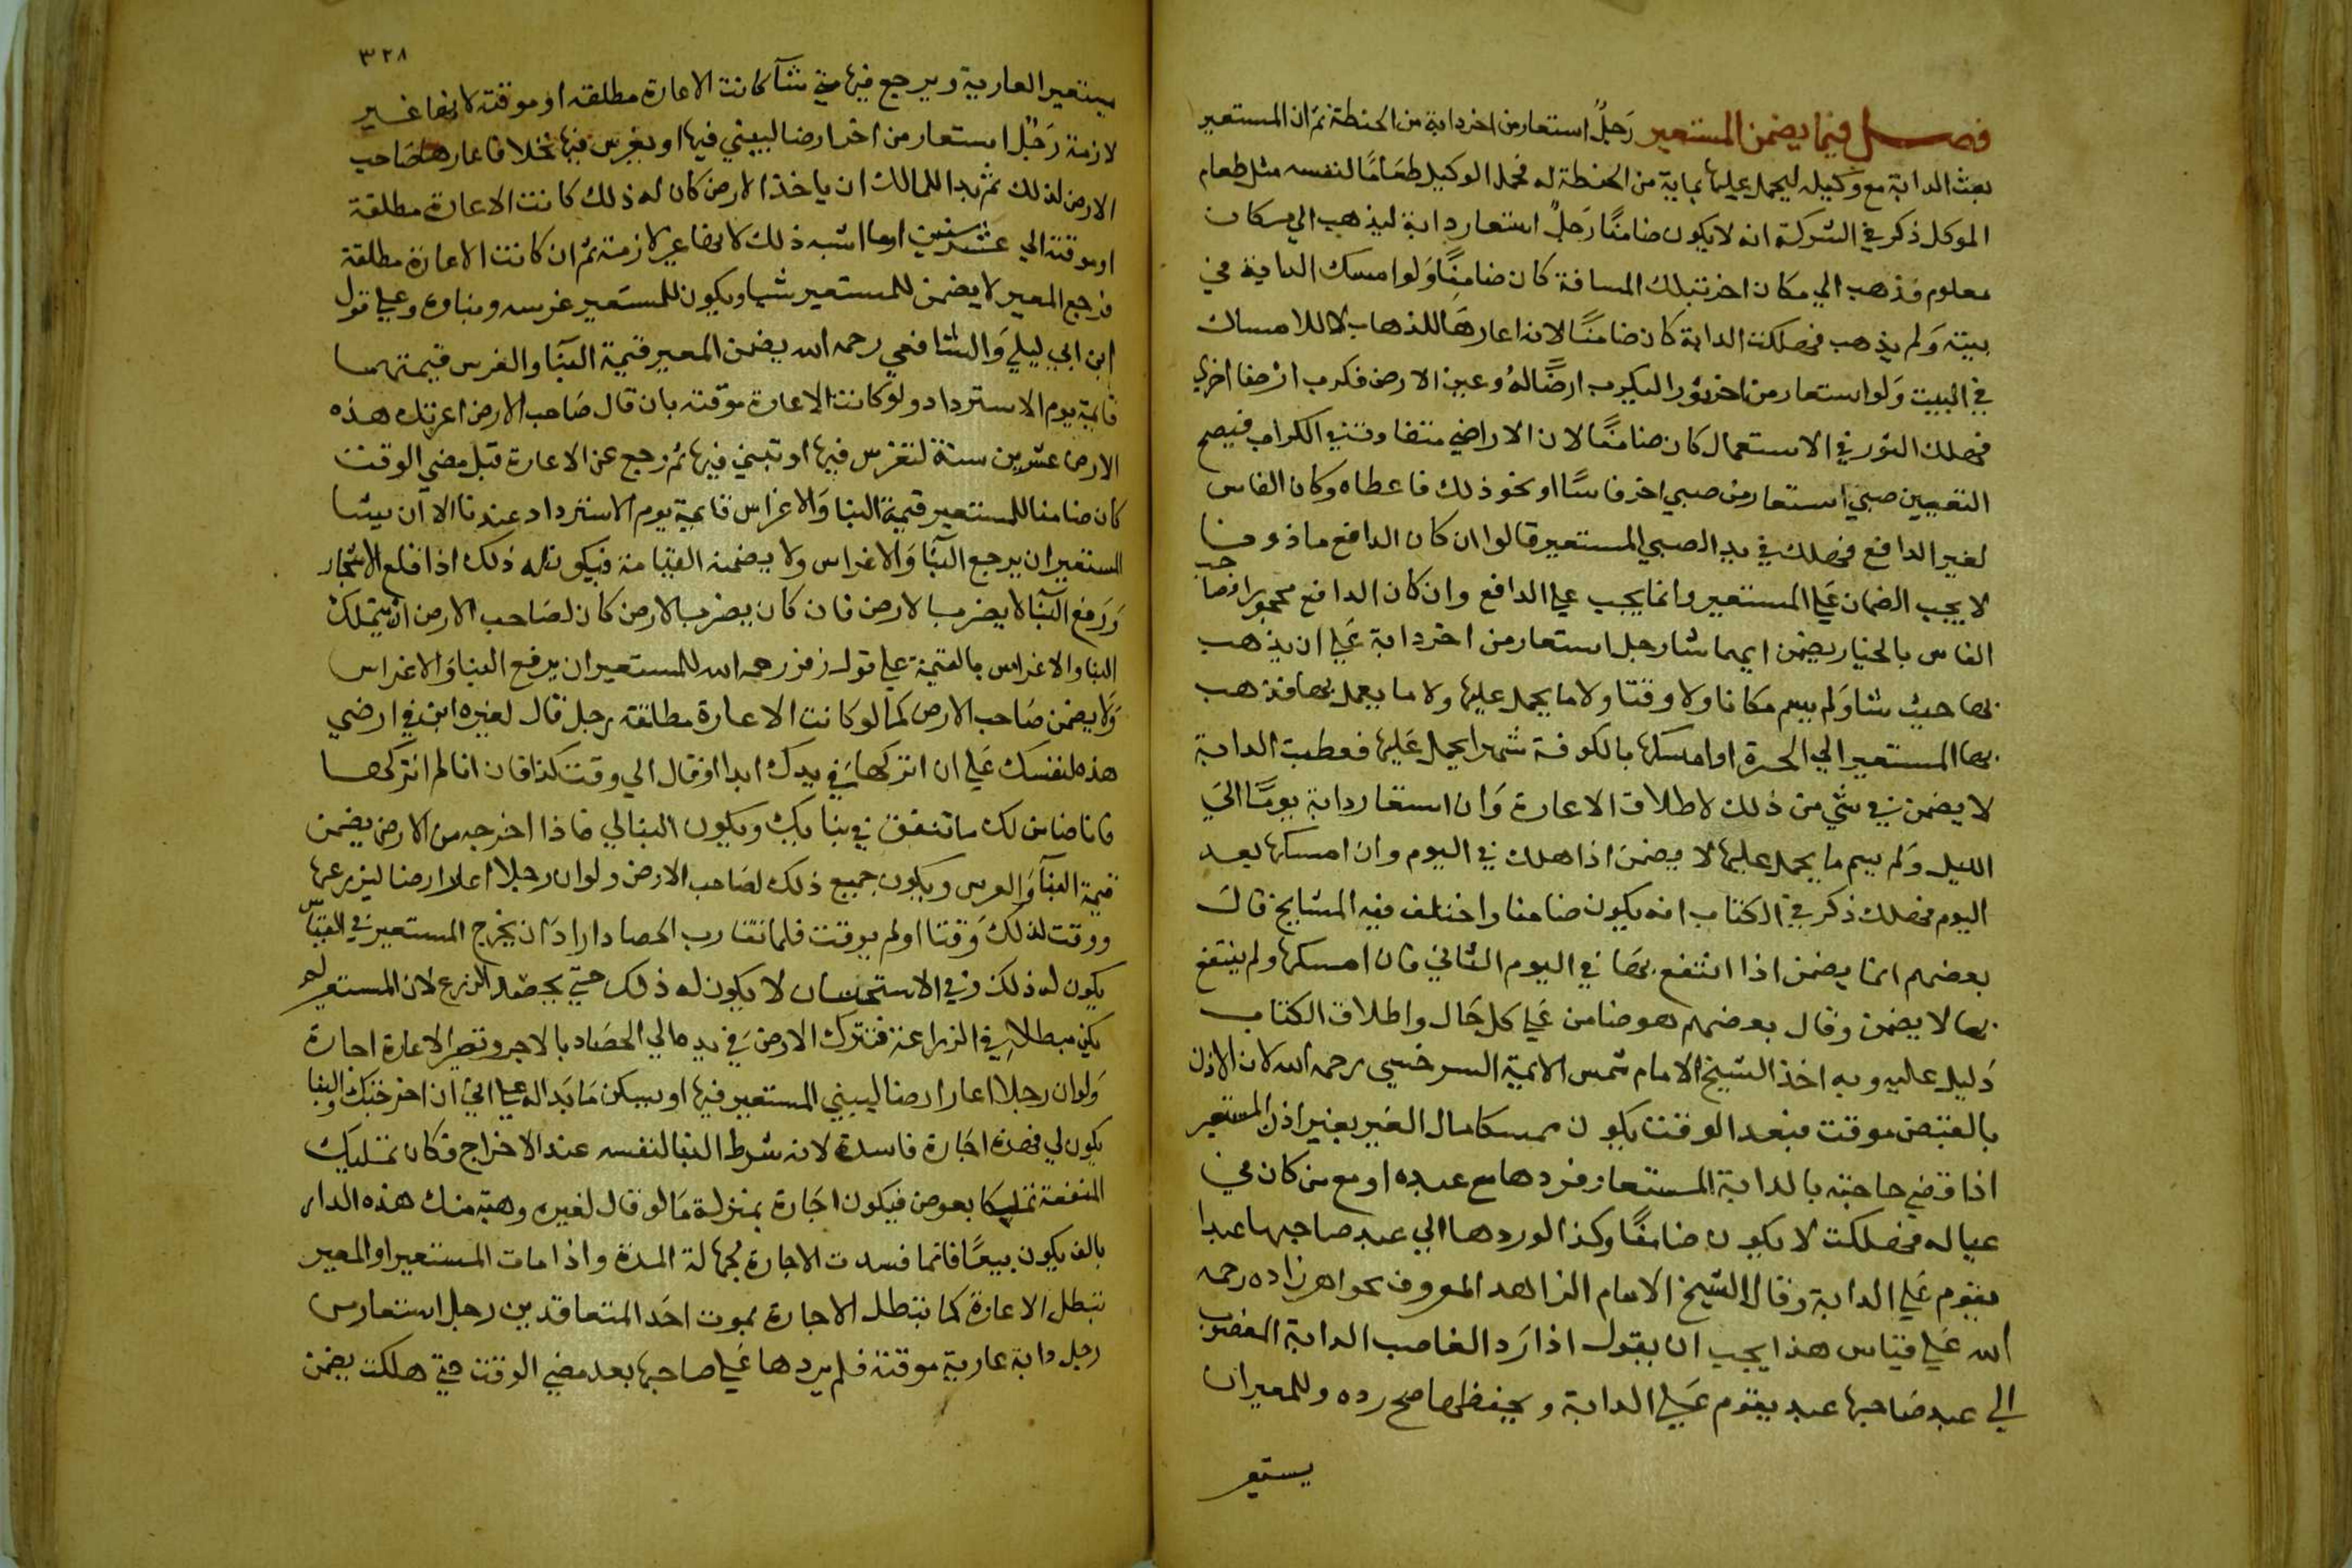 فصل فيما يضمن المستعير رَجلٌ استعار من اخر دابة من الحنطة ثم ان المستعير
بعث الدابة مع وكيله ليحمل عليها بماية من الحنطة له فحمل الوكيل طعَامًا لنفسه مثل طعام
الموكل ذكر في الشركة انه لا يكون ضامنًا رَجلٌ استعار دابة ليذهب الي مكان
معلوم فذهب الي مكان اخر بتلك المسافة كان ضامنًا وَلو امسك الدابة في
بيته وَلم يذهب فهلكت الدابة كان ضامنًا لانه اعارهَا للذهاب لا للامساك
في البيت وَلو استعار من اخر ثورا ليكرب ارضًا لهُ وعين الارض فكرب ارضا اخري
فهلك الثور في الاستعمال كان ضامنًا لان الاراضي متفاوتة في الكراب فيصح
التعيين صبي استعار من صبي اخر فاسًا او نحو ذلك فاعطاه وكان الفاس
لغير الدافع فهلك في يد الصبي المستعير قالوا ان كان الدافع ماذونا
لا يجب الضمان عَلي المستعير وانما يجب علي الدافع وان كان الدافع محجورا فصاحب
الفاس بالخيار يضمن ايهما شا رجل استعار من اخر دابة عَلي ان يذهب
بها حيث شا وَلم يسم مكانا ولا وقتا ولا ما يحمل عليها ولا ما يعمل بها فذهب
بها المستعير الي الحيرة او امسكها بالكوفة شهرا يحمل عَليها فعطبت الدابة
لا يضمن في شي من ذلك لاطلاق الاعارة وَان استعار دابة يومًا اليَ
الليل وَلم يسم ما يحمل عليها لا يضمن اذا هلك في اليوم وان امسكها بعد
اليوم فهلك ذكر في الكتاب انه يكون ضامنا واختلف فيه المشايخ قال
بعضهم انما يضمن اذا انتفع بها في اليوم الثاني فان امسكها ولم ينتفع
بها لا يضمن وقال بعضهم هو ضامن عَلي كل حَال واطلاق الكتاب
دَليل عليه وبه اخذ الشيخ الامام شمس الايمة السرخسي رحمه الله لان الاذن
بالقبض موقت فبعد الوقت يكون ممسكا مال الغير بغير اذن المستعير
اذا قضي حاجته بالدابة المستعار فردها مع عبده او مع من كان في
عياله فهلكت لا يكون ضامنًا وكذا لو ردها الي عبد صاحبها عبدا
يقوم عَلي الدابة وقال الشيخ الامام الزاهد المعروف بخواهر زاده رحمه
الله عَلي قياس هذا يجب ان يقول اذا رَد الغاصب الدابة المغضوب
الي عبد صَاحبها عبد يقوم عَلي الدابة ويحفظها صح رده وللمعير ان
يستعير
٣٢٨
يستعير العارية ويرجع فيها متي شآ كانت الاعارة مطلقه او موقته لانها غير
لازمة رَجُل استعار من اخر ارضا ليبني فيها او يغرس فيها نخلا فاعارها صَاحب
الارض لذلك ثم بدا للمالك ان ياخذ الارض كان له ذلك كانت الاعارة مطلقة
او موقتة الي عشر سنين او ما اشبه ذلك لانها غير لازمة ثم ان كانت الاعارة مطلقة
فرجع المعير لا يضمن للمستعير شيا ويكون للمستعير غرسه وبناوه وعلي قول
ابن ابي ليلي وَالشافعي رحمه الله يضمن المعير قيمة البنآ والغرس قيمتهما
قايمة يوم الاسترداد ولو كانت الاعارة موقته بان قال صَاحب الارض اعرتك هذه
الارض عشرين سنة لتغرس فيها او تبني فيها ثم رجع عن الاعارة قبل مضي الوقت
كان ضامنا للمستعير قيمة البنا وَالاغراس قايمة يوم الاسترداد عندنا الا ان يشا
المستعير ان يرجع البنآ وَالاغراس ولا يضمنه القيمة منه فيكون له ذلك اذا قلع الاشجار
وَرَفع البنآ لا يضر بالارض فان كان يضر بالارض كان لصَاحب الارض ان يتملك
البنا والاغراس بالقيمة علي قول زفر رحمه الله للمستعير ان يرفع البنا وَالاغراس
وَلا يضمن صَاحب الارض كما لو كانت الاعارة مطلقه رجل قال لغيره ابن في ارضي
هذه لنفسك عَلي ان اتركها في يدك ابدا او قال الي وقت كذا فان انا لم اتركها
فانا ضامن لك ما تنفق في بنايك ويكون البنا لي فاذا اخرجه من الارض يضمن
قيمة البنآ وَالغرس ويكون جميع ذلك لصَاحب الارض ولو ان رجلا اعار ارضا ليزرعها
ووقت لذلك وَقتا او لم يوقت فلما تقارب الحصاد ارادَ ان يخرج المستعير في القياس
يكون له ذلك وفي الاستحسان لا يكون له ذلك حتي يحصد الزرع لان المستعير لم
يكن مبطلا في الزراعة فتترك الارض في يده الي الحصَاد بالاجر وتصير الاعارة اجارة
وَلو ان رجلا اعار ارضا ليبني المستعير فيها او يسكن مَا بَدا له علي اني ان اخرجتك فالبنا
يكون لي فهذه اجَارة فاسدة لانه شرط البنا لنفسه عند الاخراج فكان تمليك
المنفعة تمليكا بعوض فيكون اجَارة بمنزلة مَا لو قال لغيره وهبة منك هذه الدار
بالف يكون بيعًا فانما فسدت الاجارة لجهالة المدة واذا مات المستعير او المعير
تبطل الاعارة كما تبطل الاجارة بموت احَد المتعاقدين رجل استعار من
رجل دابة عارية موقتة فلم يردها عَلي صاحبها بعد مضي الوقت حتي هلكت يضمن